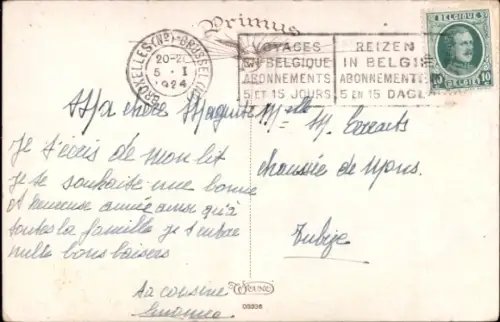 Primus
BRUXELLES (Nd) - BRUSSEL
20-21
5 · I
1924
VOYAGES
EN BELGIQUE
ABONNEMENTS
5 ET 15 JOURS
REIZEN
IN BELGIE
ABONNEMENT
5 EN 15 DAG
BELGIQUE
10 10
Ma chère
Je t'écris de mon lit
je te souhaite une bonne
et heureuse année ainsi qu'à
toutes la famille je t'
mille bons baisers
ta cousine
Melle M.
chaussée de Mons.
Tubize